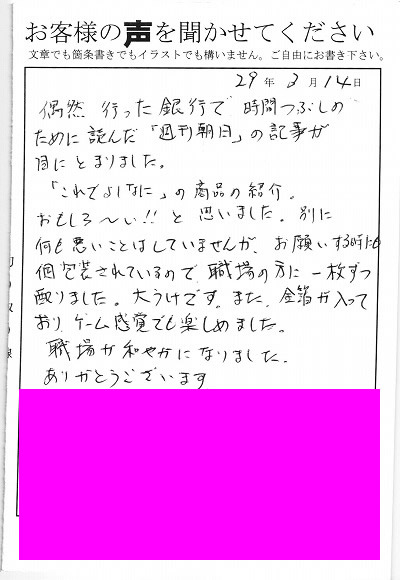 お客様の声を聞かせてください
文章でも箇条書きでもイラストでも構いません。ご自由にお書き下さい。
29年3月14日
偶然 行った銀行で 時間つぶしの
ために読んだ「週刊朝日」の記事が
目にとまりました。
「これでよしなに」の商品の紹介。
おもしろ〜い!!と思いました。別に
何も悪いことはしていませんが、お願いする時にも
個包装されているので、職場の方に一枚ずつ
配りました。大うけです。また、金箔が入って
おり、ゲーム感覚でも楽しめました。
職場が和やかになりました。
ありがとうございます